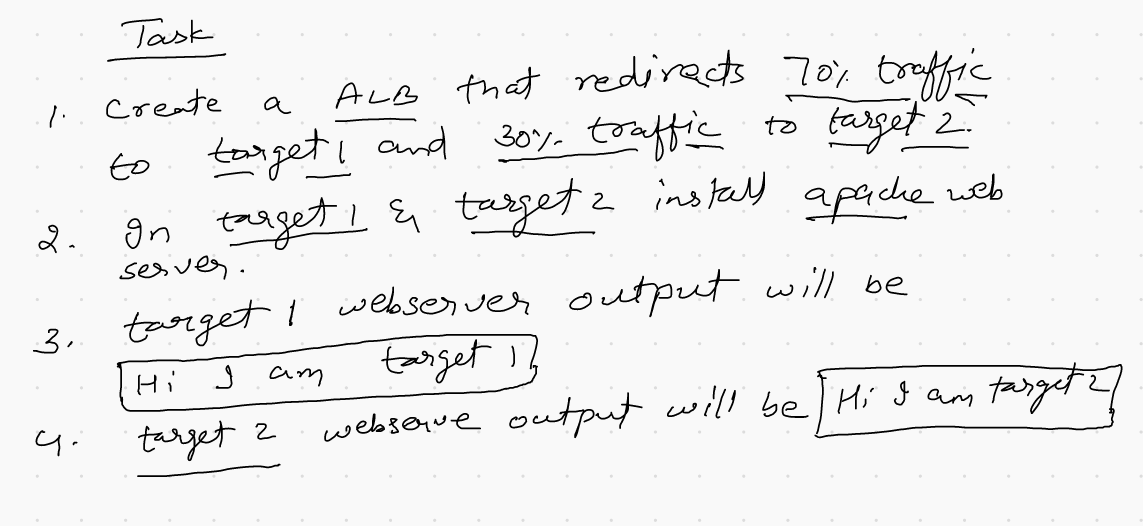 Task
1. Create a ALB that redirects 70% traffic
to target 1 and 30% traffic to target 2.
2. In target 1 & target 2 install apache web
server.
3. target 1 webserver output will be
Hi I am target 1
4. target 2 webserve output will be Hi I am target 2